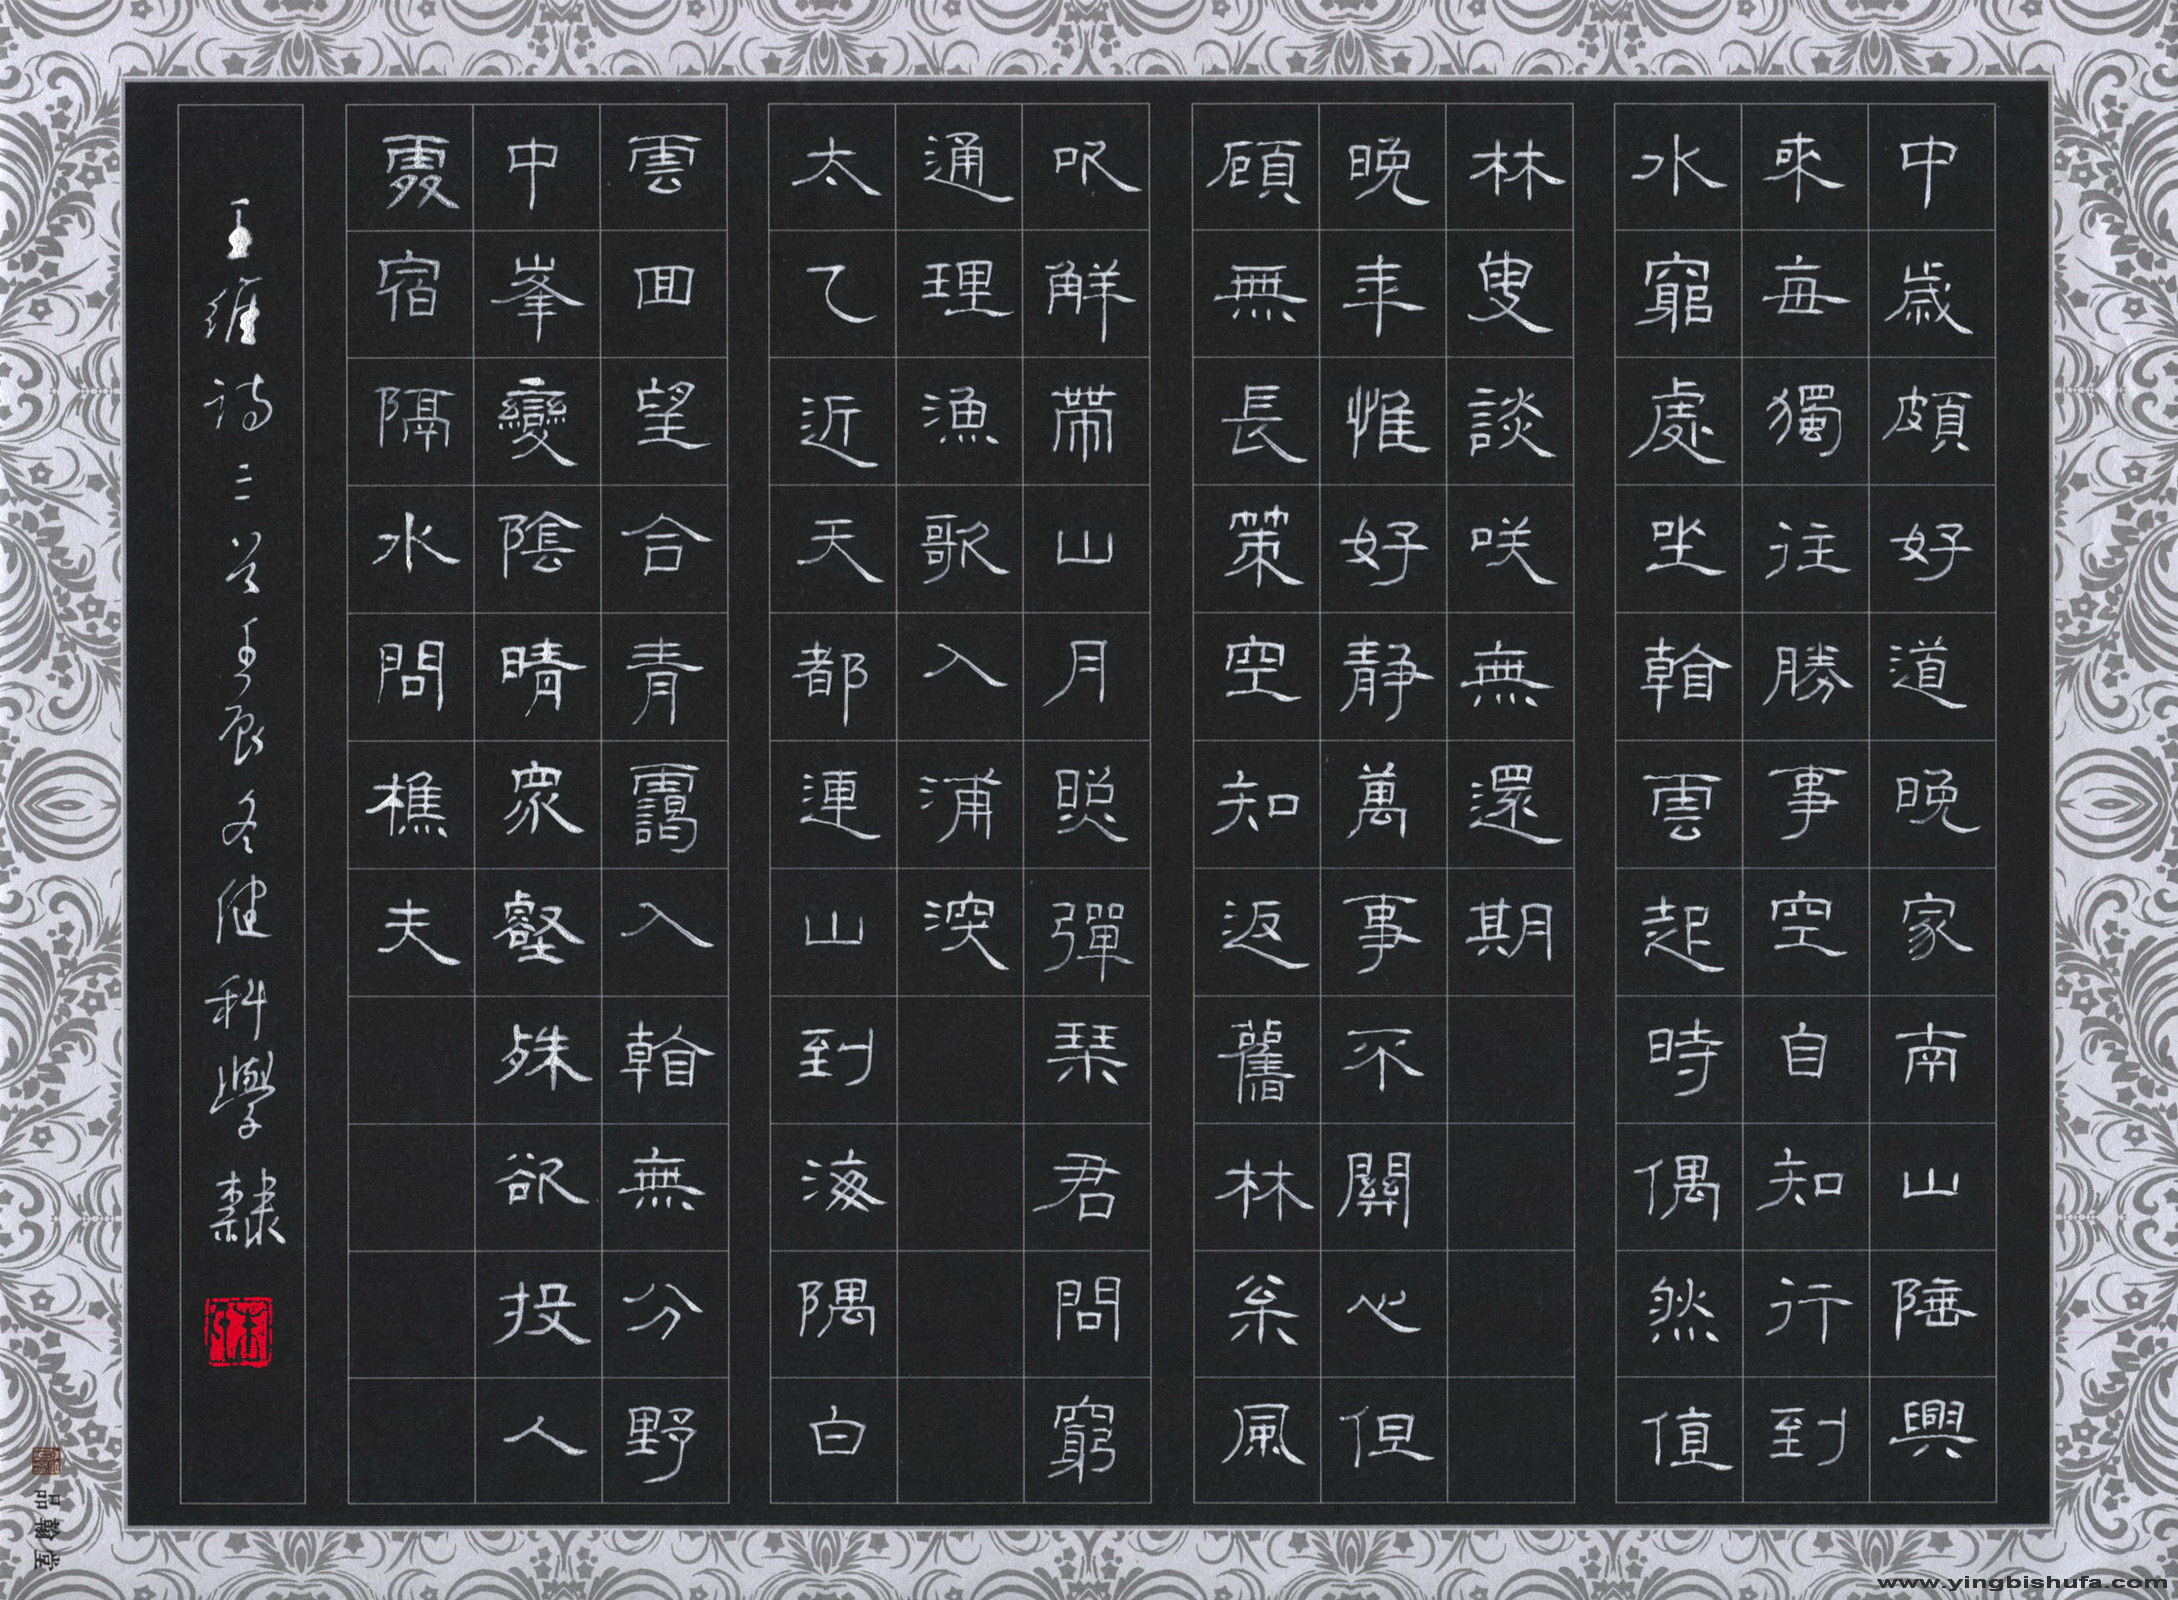 中歲頗好道晚家南山陲興
來每獨往勝事空自知行到
水窮處坐看雲起時偶然值
林叟談咲無還期
晚年惟好静萬事不關心但
顧無長策空知返舊林枀風
吹解帶山月照彈琴君問窮
通理漁歌入浦深
太乙近天都連山到海隅白
雲回望合青靄入看無分野
中峯變陰晴眾壑殊欲投人
處宿隔水問樵夫
王維詩三首壬辰冬健科學隸
品翰堂
www.yingbishufa.com